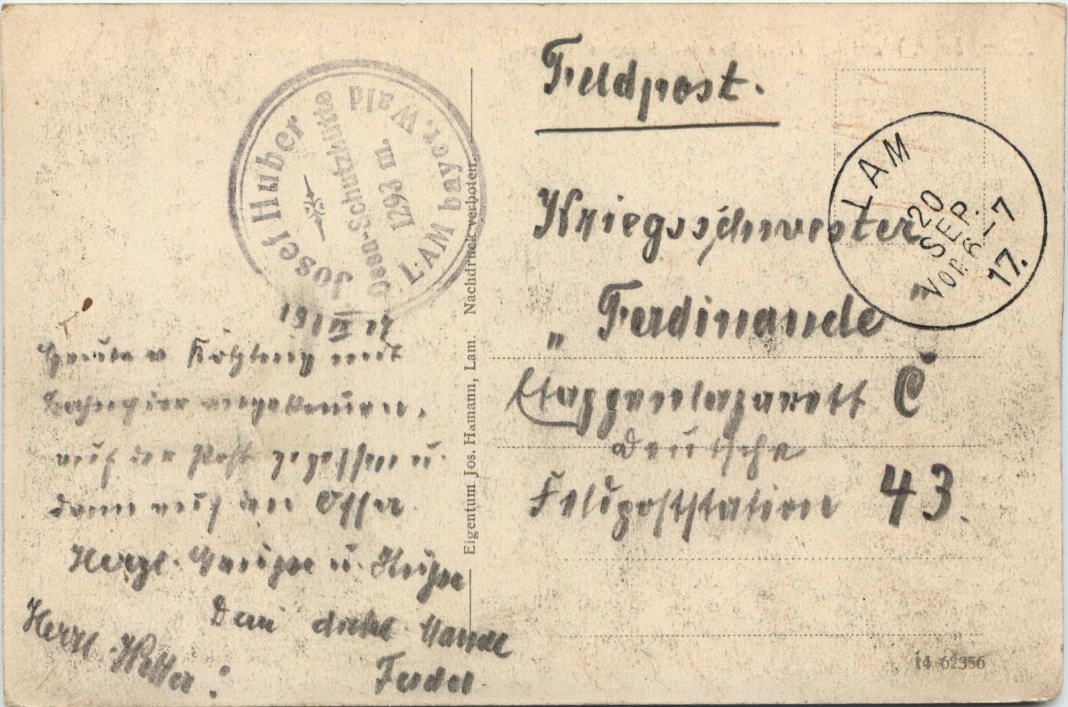 Josef Huber
Osser-Schutzhütte
1293 m.
LAM bayer. Wald
19/IX 17
Heute v. Kötzting mit
angekommen,
auf der Post gegessen u.
dann auf den Osser
Herzl. Grüße u. Küsse
Dein
Herrl. Wetter!
Eigentum Jos. Hamann, Lam. Nachdruck verboten.
Feldpost.
LAM
20
SEP.
VORM-7
17.
Kriegsschwester
„Ferdinande"
Etappenlazarett C
Deutsche
Feldpoststation 43.
14 62356